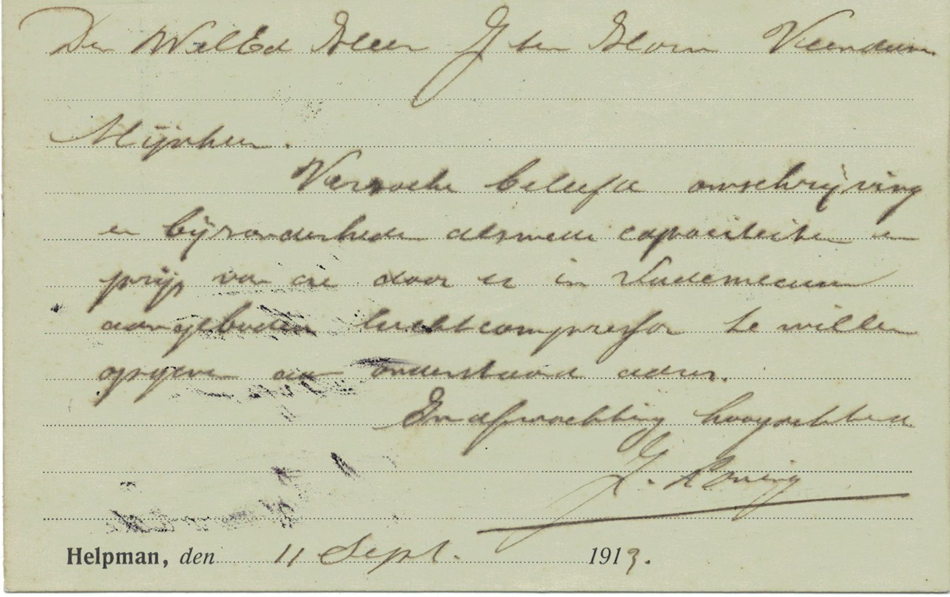 Den WelEd Heer J ten Horn Veendam
Mijnheer.
Verzoeke beleefd omschrijving
en bijzonderheden alsmede capaciteiten en
prijs van de door u in Vademecum
aangeboden luchtcompressor te willen
opgeven aan onderstaand adres.
In afwachting hoogachtend
J. Koning
Helpman, den 11 Sept. 1913.